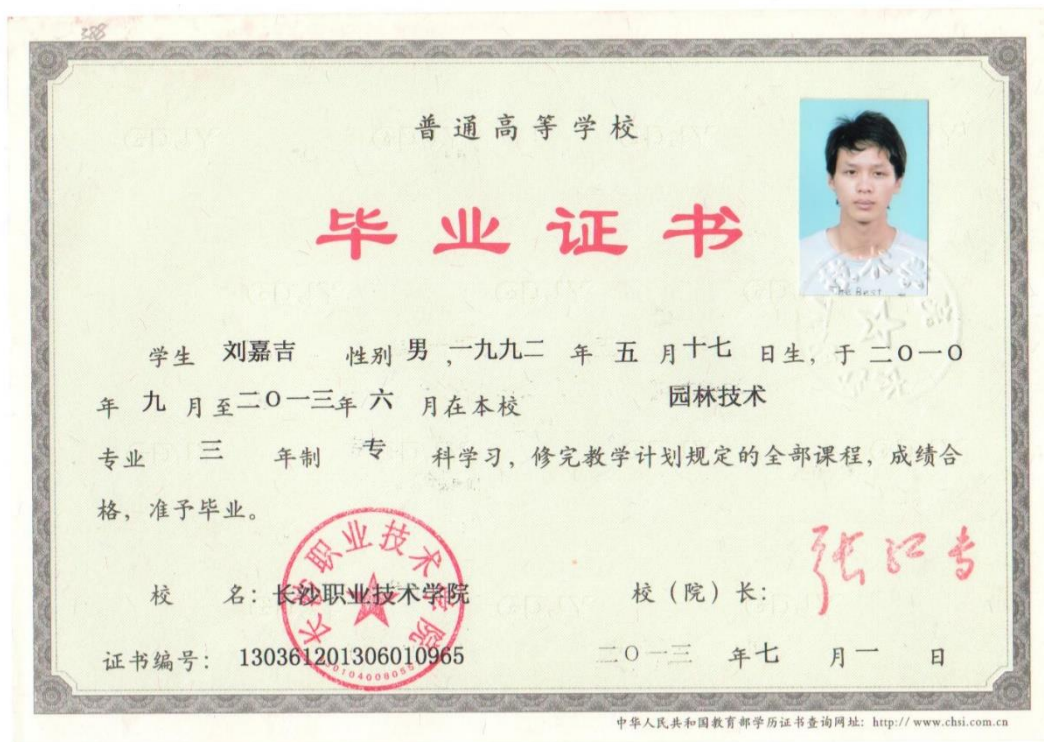 388
普通高等学校
毕业证书
学生 刘嘉吉 性别 男 ,一九九二 年 五 月十七 日生, 于 二〇一〇
年 九 月至二〇一三年 六 月在本校 园林技术
专业 三 年制 专 科学习, 修完教学计划规定的全部课程, 成绩合
格, 准予毕业。
校 名: 长沙职业技术学院
校 (院) 长:
长沙职业技术学院
证书编号: 130361201306010965
二〇一三 年七 月一 日
中华人民共和国教育部学历证书查询网址: http:// www.chsi.com.cn